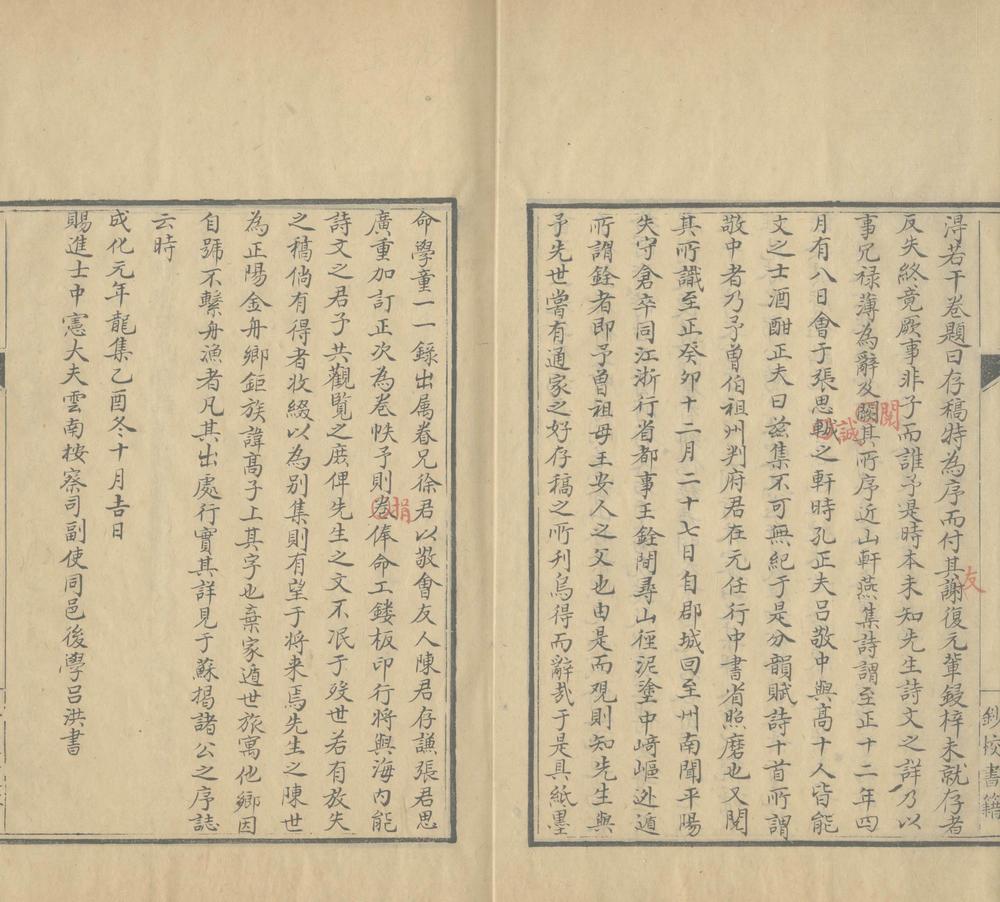 淂若干卷題曰存稿特為序而付其謝復元輩鋟梓未就存者
友
反失終竟厥事非子而誰予是時本未知先生詩文之詳乃以
事冗祿薄為辭及闗其所序近山軒燕集詩謂至正十二年四
閱
月有八日會于張思誠之軒時孔正夫呂敬中與高十人皆能
誠
文之士酒酣正夫曰茲集不可無紀于是分韻賦詩十首所謂
敬中者乃予曾伯祖州判府君在元任行中書省照磨也又閱
其所識至正癸卯十二月二十七日自郡城回至州南聞平陽
失守倉卒同江浙行省都事王銓間尋山徑泥塗中崎嶇迯遁
所謂銓者即予曾祖母王安人之父也由是而观則知先生與
予先世嘗有通家之好存稿之所刊烏得而辭哉于是具紙墨
命學童一一錄出属眷兄徐君以敬會友人陳君存謙張君思
廣重加訂正次為卷帙予則卷俸命工鏤板印行將與海内能
捐
詩文之君子共觀覧之庶俾先生之文不泯于殁世若有放失
之稿倘有得者收綴以為别集則有望于將来焉先生之陳世
為正陽金舟鄉鉅族諱髙子上其字也棄家遁世旅寓他鄉因
自號不繫舟漁者凡其出處行實其詳見于蘇掲諸公之序誌
云時
成化元年龍集乙酉冬十月𠮷日
賜進士中憲大夫雲南按察司副使同邑後學呂洪書
斠校書籍